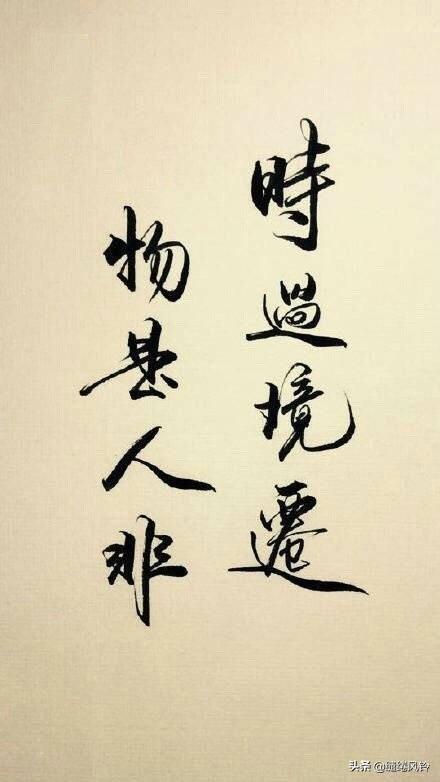 時過境遷
物是人非
头条 @风铃